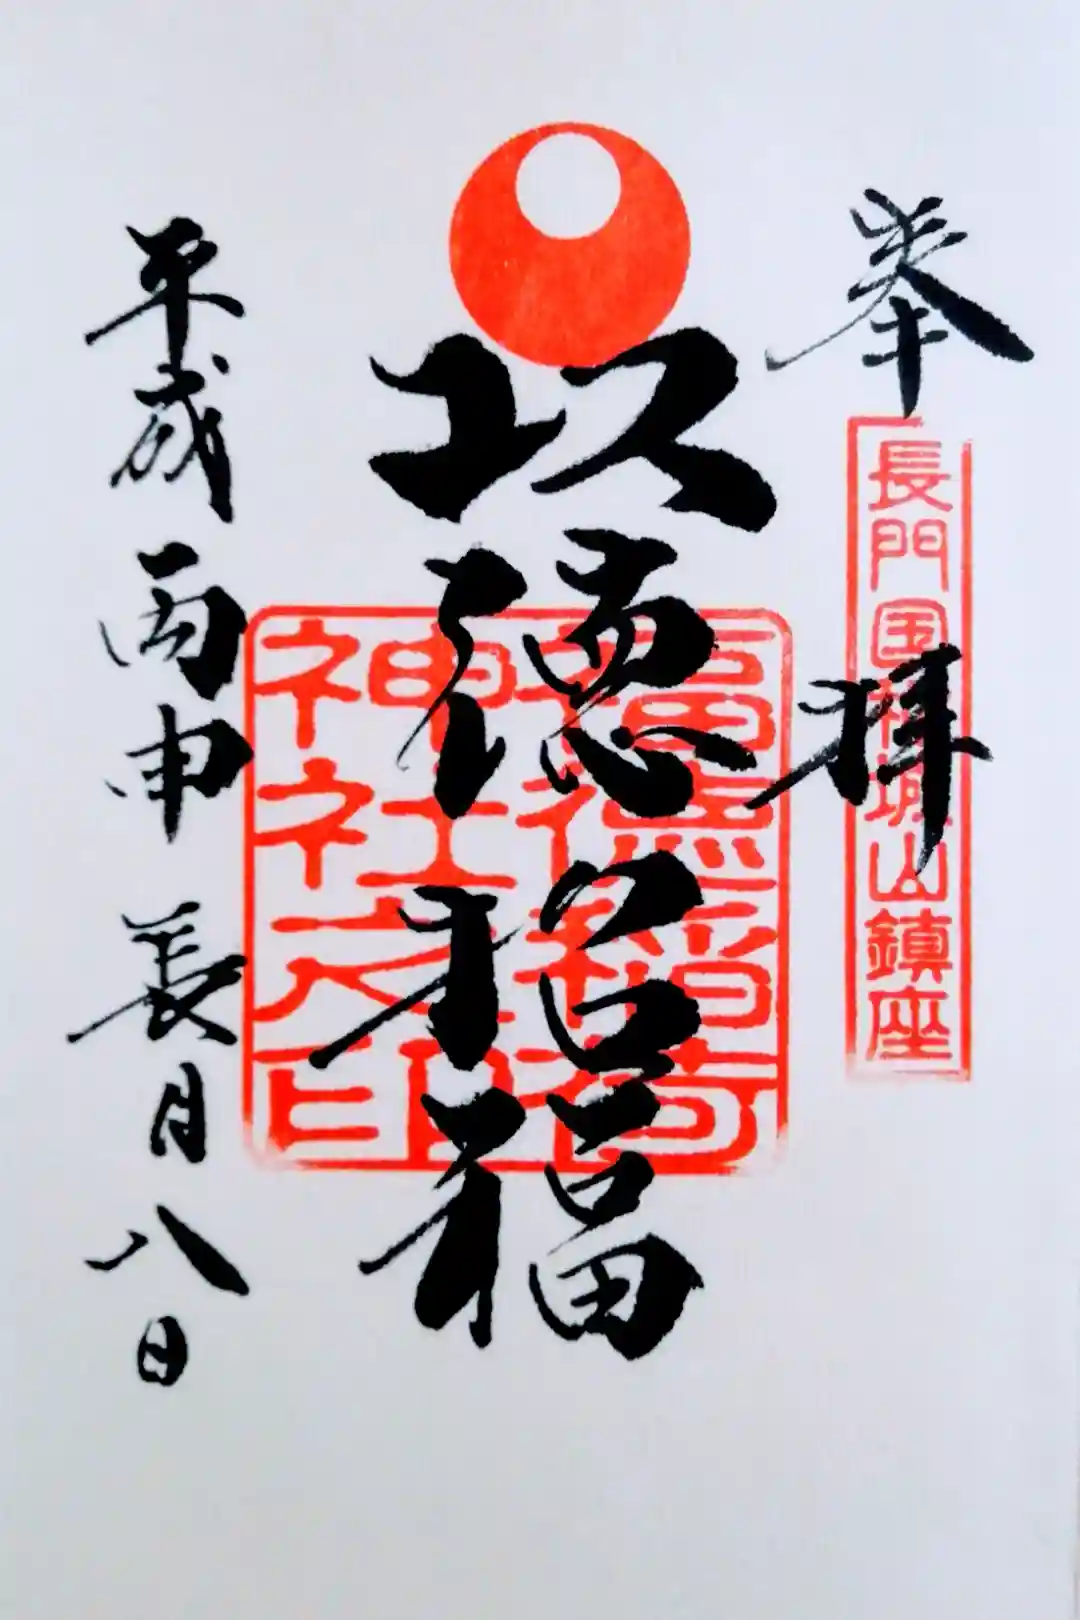 奉拝
長門国稲城山鎮座
以徳招福
福徳稲荷
神社之印
平成丙申長月八日